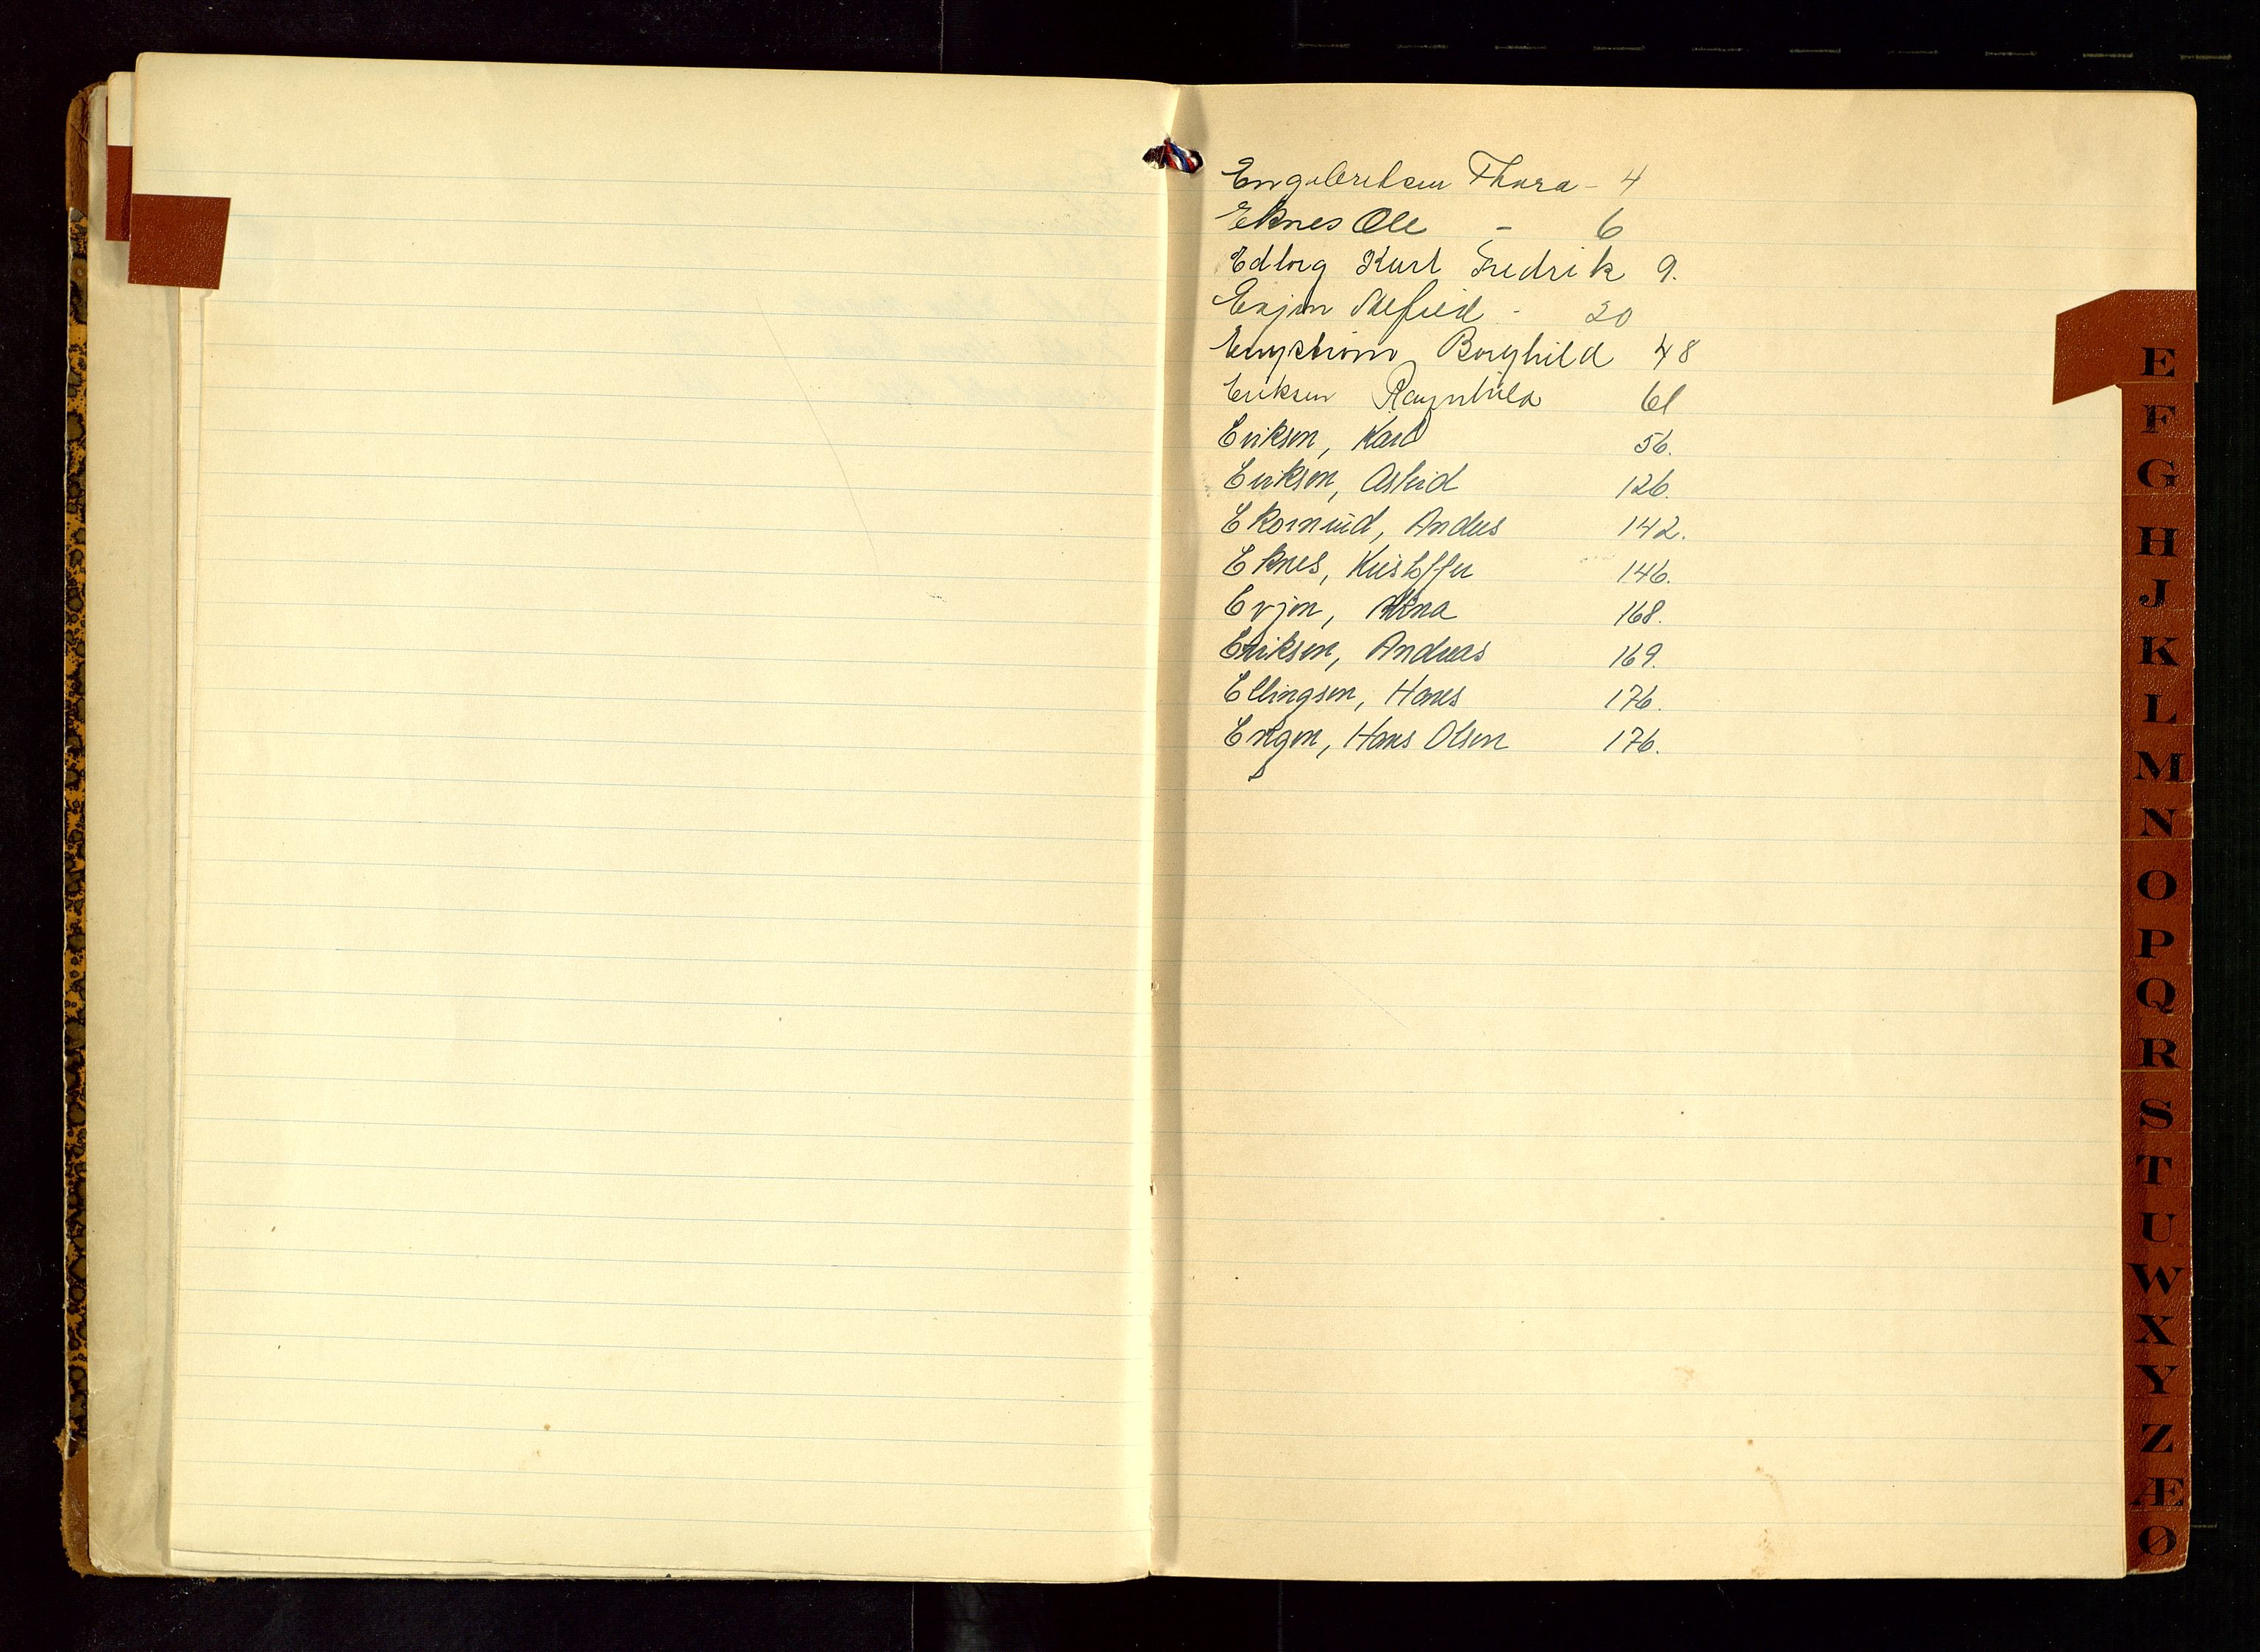 Engebretsen Thora - 4
Eknes Ole - 6
Edborg Kurt Fredrik 9.
Evjen - 20
Engstrøm Borghild 48
Eriksen Ragnhild 61
Eriksen, Karl 56.
Eriksen, Astrid 126.
Ekornrud, Anders 142.
Eknes, Kristoffer 146.
Evjen, Anna 168.
Eriksen, Andreas 169.
Ellingsen, Hans 176.
Engen, Hans Olsen 176.
E
F
G
H
J
K
L
M
N
O
P
Q
R
S
T
U
W
X
Y
Z
Æ
Ø